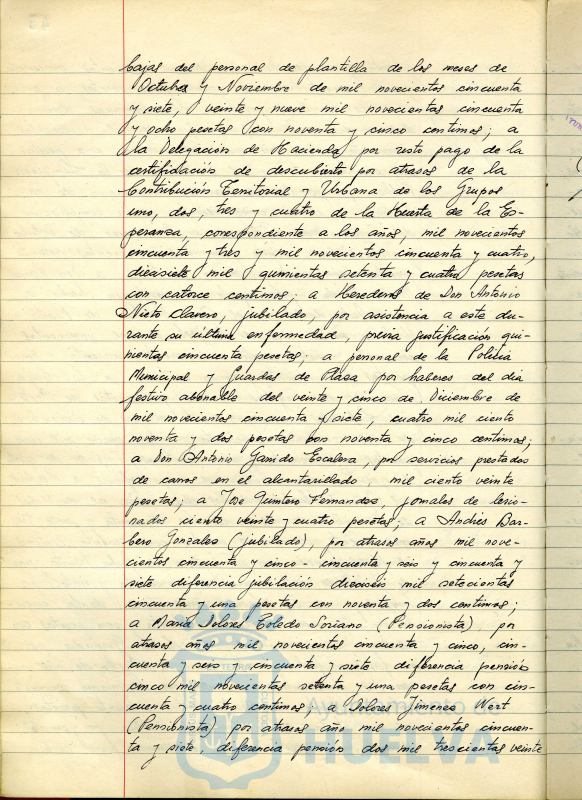 bajas del personal de plantilla de los meses de
Octubre y Noviembre de mil novecientos cincuenta
y siete, veinte y nueve mil novecientas cincuenta
y ocho pesetas con noventa y cinco centimos; a
la Delegación de Hacienda por resto pago de la
certificación de descubierto por atrasos de la
Contribución Territorial y Urbana de los Grupos
uno, dos, tres y cuatro de la Huerta de la Es-
peranza, correspondiente a los años, mil novecientos
cincuenta y tres y mil novecientos cincuenta y cuatro,
diecisiete mil quinientas setenta y cuatro pesetas
con catorce centimos; a Herederos de Don Antonio
Nieto Clavero, jubilado, por asistencia a este du-
rante su ultima enfermedad, previa justificación qui-
nientas cincuenta pesetas; a personal de la Policia
Municipal y Guardas de Plaza por haberes del dia
festivo abonable del veinte y cinco de Diciembre de
mil novecientos cincuenta y siete, cuatro mil ciento
noventa y dos pesetas con noventa y cinco centimos;
a Don Antonio Garrido Escalera, por servicios prestados
de carros en el alcantarillado, mil ciento veinte
pesetas; a Jose Quintero Fernandez, jornales de lesio-
nados ciento veinte y cuatro pesetas; a Andres Bar-
bero Gonzalez (jubilado), por atrasos años mil nove-
cientos cincuenta y cinco - cincuenta y seis y cincuenta y
siete diferencia jubilación dieciseis mil setecientas
cincuenta y una pesetas con noventa y dos centimos;
a Maria Dolores Toledo Soriano (Pensionista), por
atrasos años mil novecientos cincuenta y cinco, cin-
cuenta y seis y cincuenta y siete diferencia pensión
cinco mil novecientas setenta y una pesetas con cin-
cuenta y cuatro centimos; a Dolores Jimenez Wert
(Pensionista) por atrasos año mil novecientos cincuen-
ta y siete, diferencia pensión dos mil trescientas veinte
HUELVA